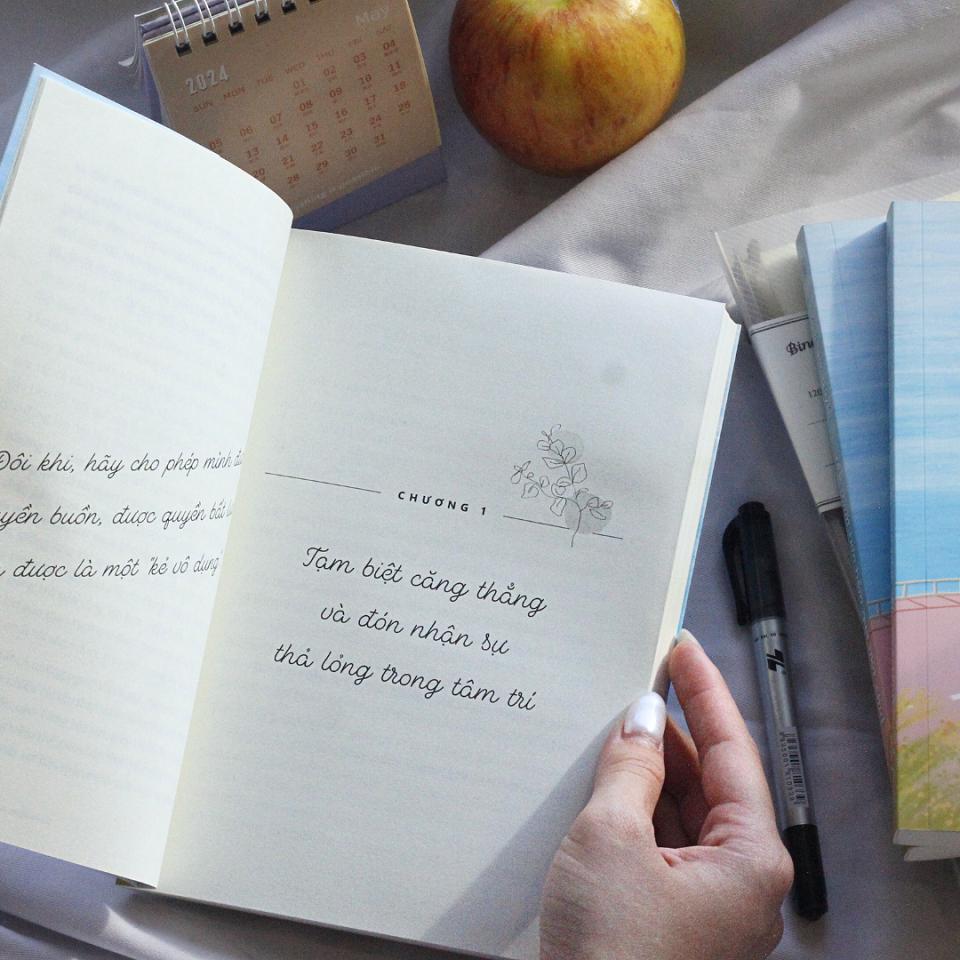 May
2024
SUN MON TUE WED THU FRI SAT
01 02 03 04
05 06 07 08 09 10 11
13 14 15 16 17 18
20 21 22 23 24 25
28 29 30 31
Đôi khi, hãy cho phép mình
buồn, được quyền bất
được là một "kẻ vô dụng"
CHƯƠNG 1
Tạm biệt căng thẳng
và đón nhận sự
thả lỏng trong tâm trí